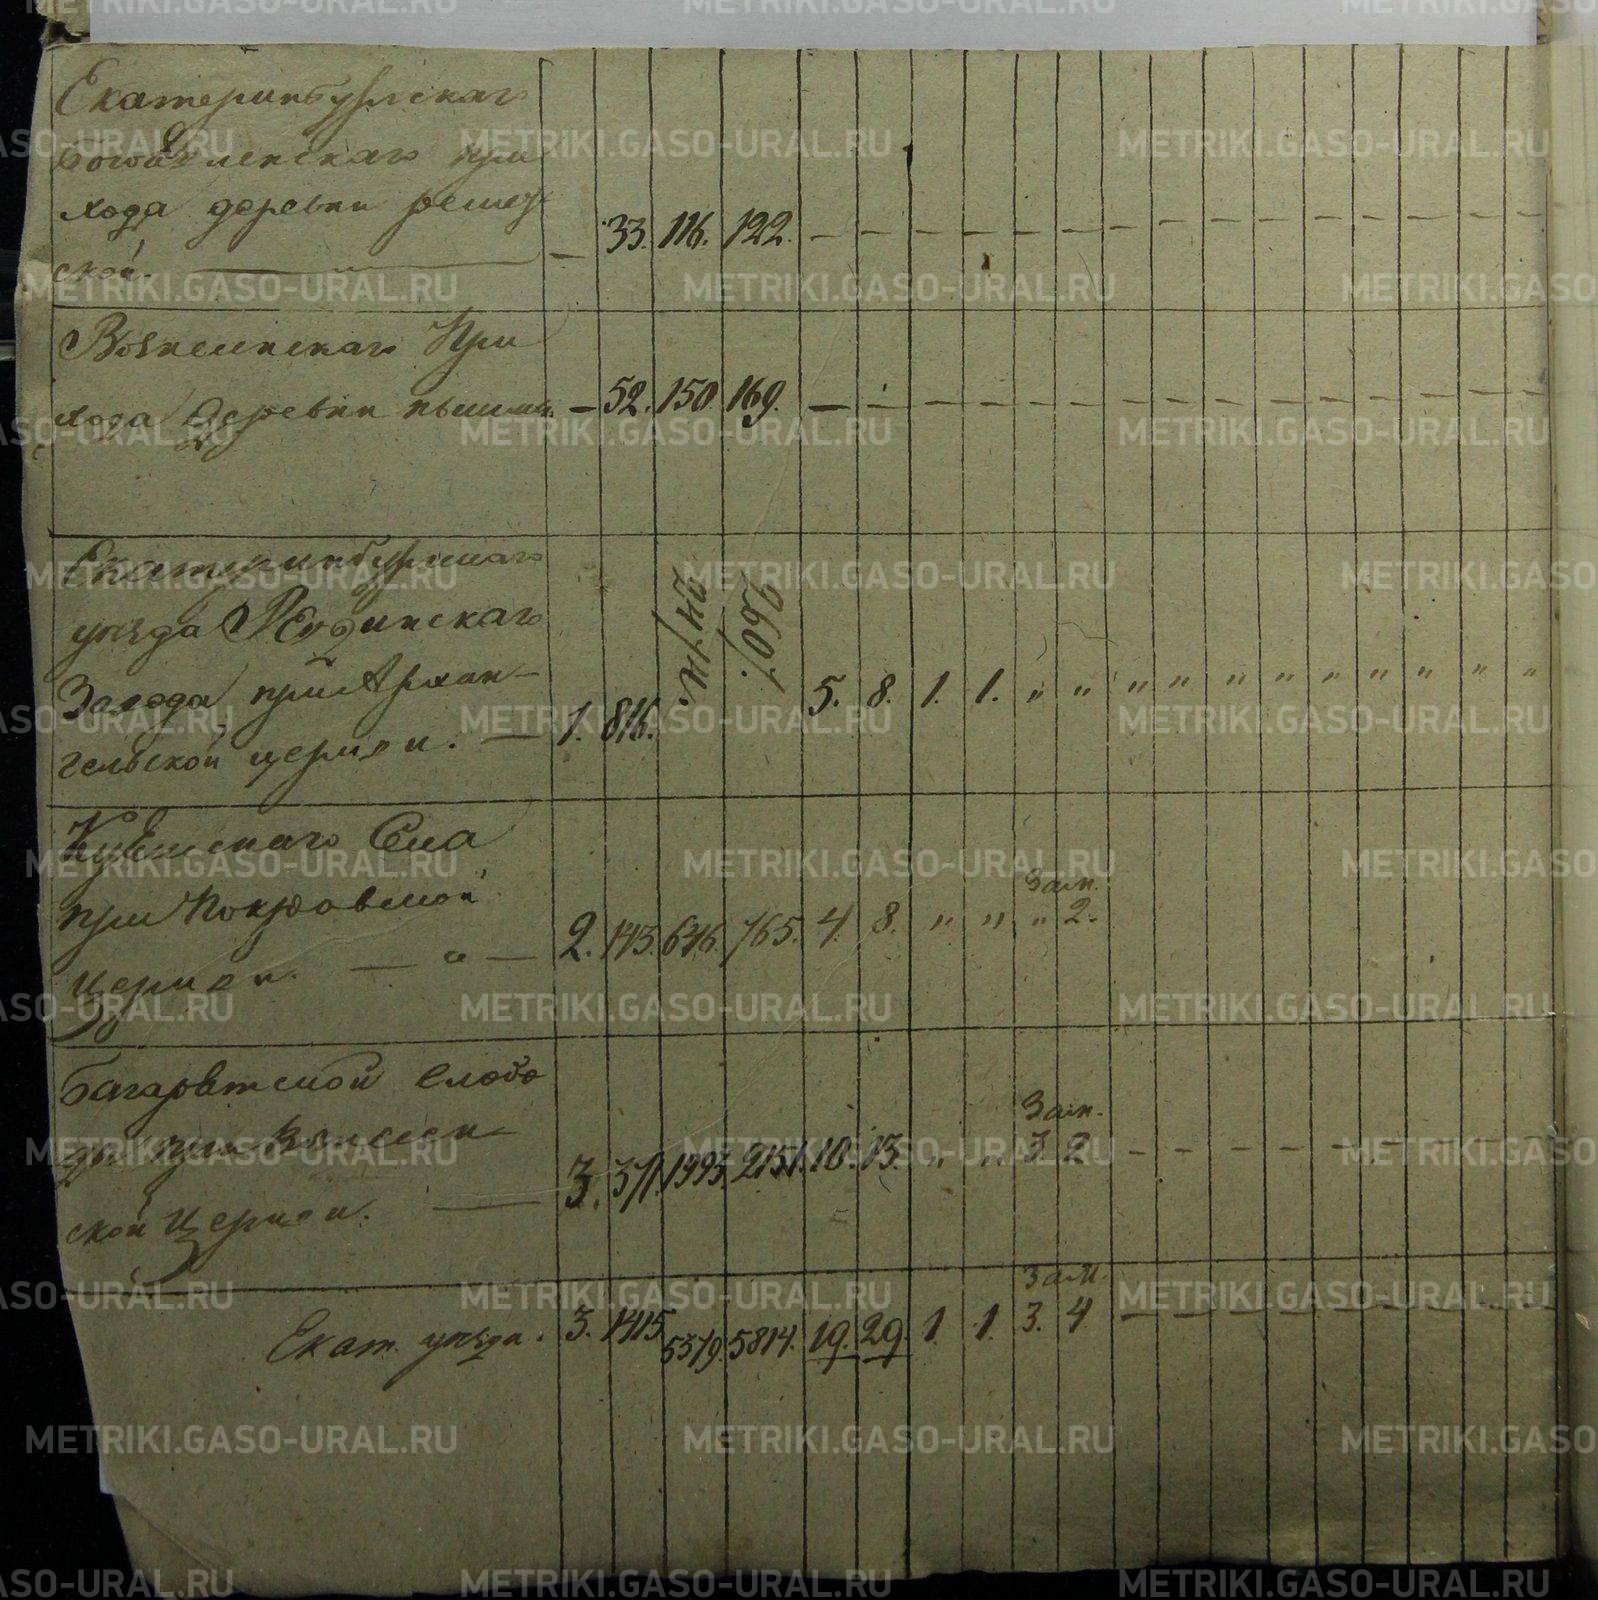 Екатеринбургскаго
Богоявленскаго при
хода деревни решет
ской. — 33. 116. 122. — — — — — — — — — — — — — — —
Вознесенскаго При
хода Деревни пышми. — 52. 150 169. — — — — — — — — — — — — — — —
Екатеринбургскаго
уезда Ревдинскаго
Завода при Архан-
гельской церкви. — 1. 816. 2607. 5. 8. 1. 1. " " " " " " " " " " "
Села
Зашт.
при Покровской
церкви. — " — 2. 143. 646. 765. 4. 8. " " " 2.
Багарятской слобо
Зашт.
ды при Вознесен
ской Церкви. — 3. 371. 1993. 2151. 10. 13. " " 3 2 — — — — — — — — —
Зашт.
Екат. уезда. 3. 1415 5379. 5814. 19. 29. 1 1. 3. 4 — — — — — — — — —
METRIKI.GASO-URAL.RU